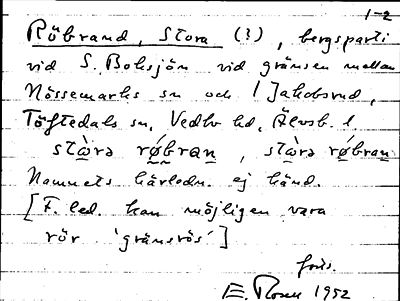 1-2
Röbrand, Stora (?), bergsparti
vid S. Boksjön vid gränsen mellan
Nössemarks sn och Jakobsrud,
Töftedals sn, Vedbo hd, Älvsb. l
stὼra rǿbran, stὼra rǿbran
Namnets härledn. ej känd.
[F. led. kan möjligen vara
rör 'gränsrös']
E. 1952